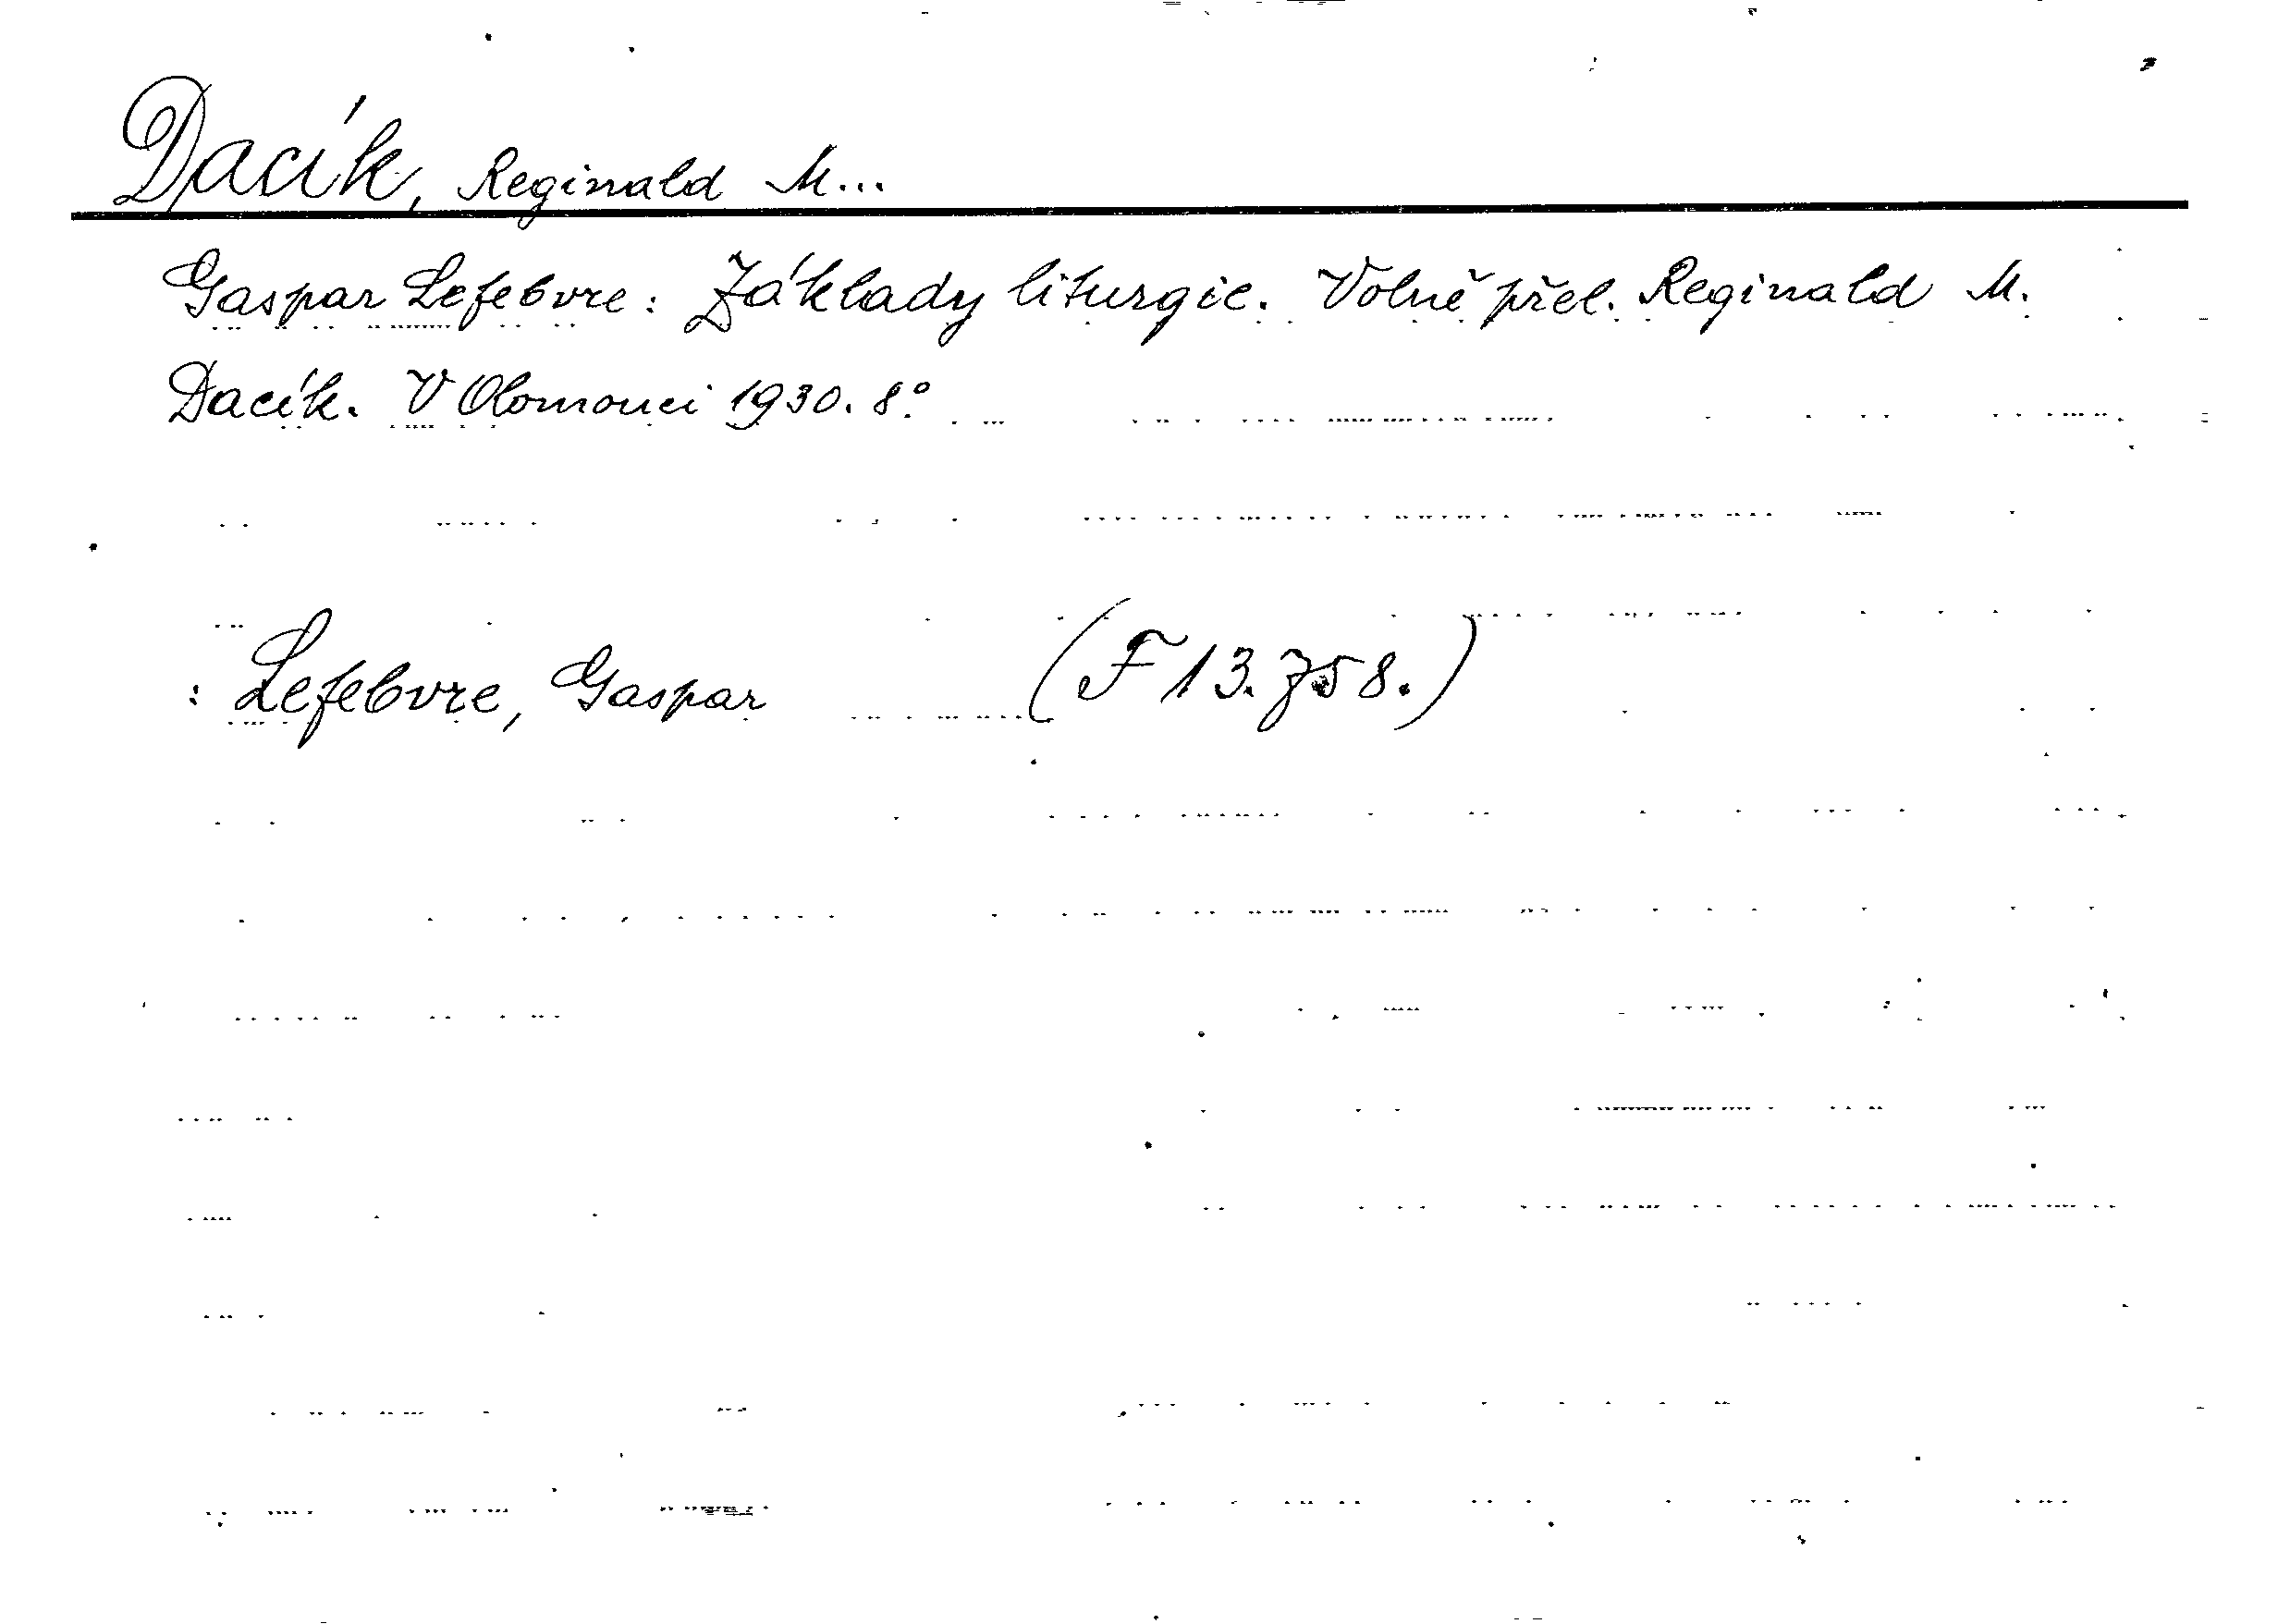 Dacík, Reginald M...
Gaspar Lefebvre: Základy liturgie. Volně přel. Reginald M.
Dacík. V Olomouci 1930. 8°.
: Lefebvre, Gaspar (F 13.758.)